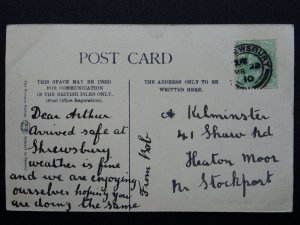 POST CARD
THIS SPACE MAY BE USED
FOR COMMUNICATION
IN THE BRITISH ISLES ONLY.
(Post Office Regulation).
THE ADDRESS ONLY TO BE
WRITTEN HERE.
Dear Arthur
Arrived safe at
Shrewsbury
weather is fine
and we are enjoying
ourselves hoping you
are doing the same
From Bob
A Kilminster
41 Shaw Rd
Heaton Moor
Nr Stockport